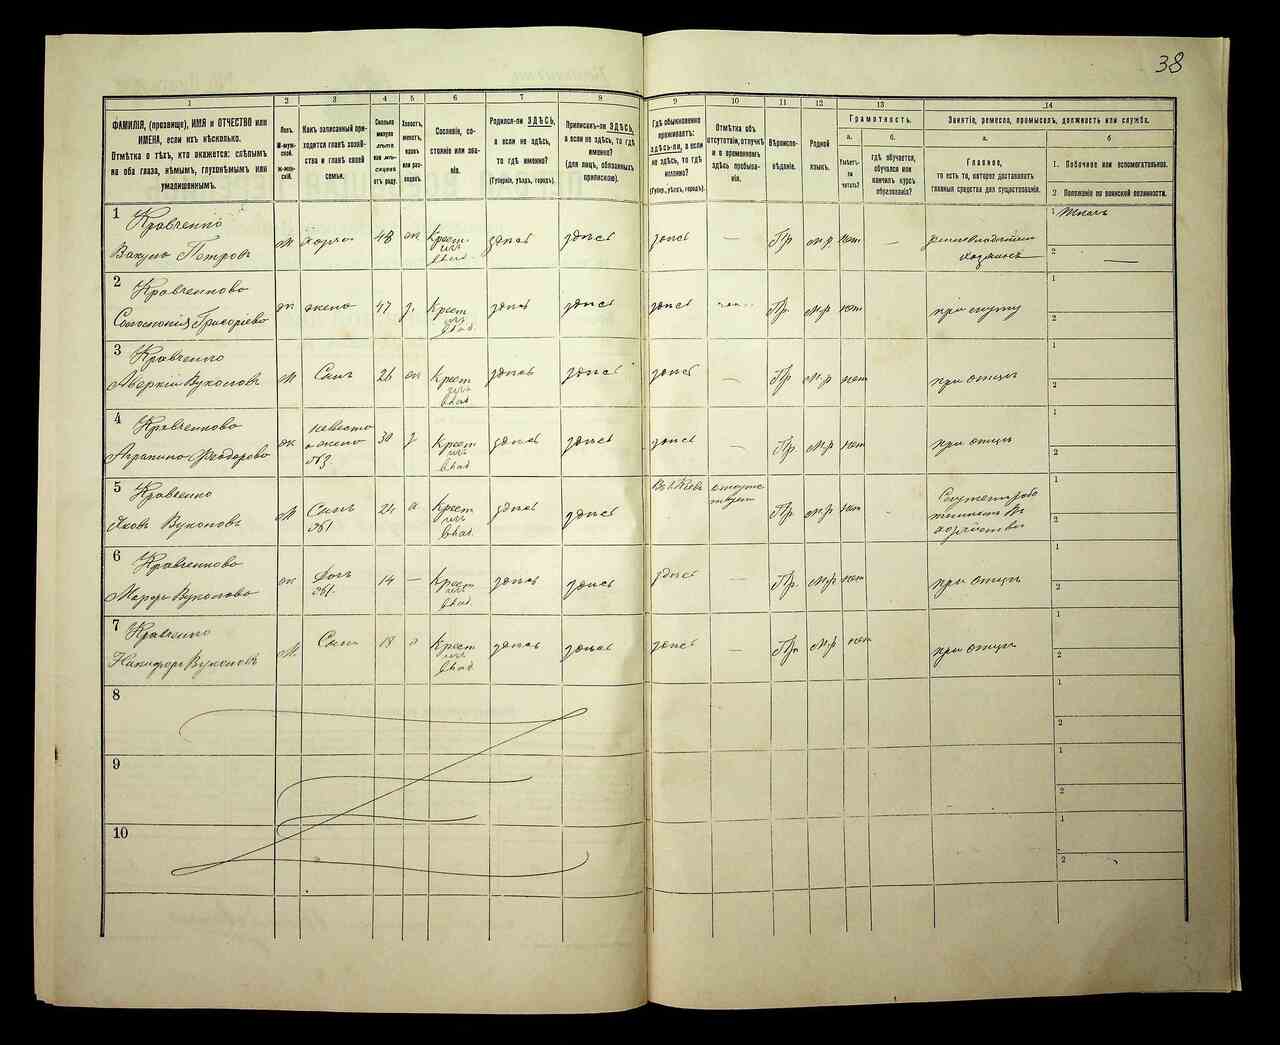 38
1
2
3
4
5
6
7
8
9
10
11
12
13
14
ФАМИЛІЯ, (прозвище), ИМЯ и ОТЧЕСТВО или
ИМЕНА, если ихъ нѣсколько.
Отмѣтка о тѣхъ, кто окажется: слѣпымъ
на оба глаза, нѣмымъ, глухонѣмымъ или
умалишоннымъ.
Полъ.
М-муж-
ской.
Ж-жен-
скій.
Какъ записанный при-
ходится главѣ хозяй-
ства и главѣ своей
семьи.
Сколько
минуло
лѣтъ
или мѣ-
сяцевъ
отъ роду.
Холостъ,
женатъ,
вдовъ
или раз-
веденъ.
Сословіе, со-
стояніе или зва-
ніе.
Родился-ли ЗДѢСЬ,
а если не здѣсь,
то гдѣ именно?
(Губернія, уѣздъ, городъ).
Приписанъ-ли ЗДѢСЬ,
а если не здѣсь, то гдѣ
именно?
(для лицъ, обязанныхъ
припискою).
Гдѣ обыкновенно
проживаетъ:
здѣсь-ли, а если
не здѣсь, то гдѣ
именно?
(Губер., уѣздъ, городъ).
Отмѣтка объ
отсутствіи, отлучкѣ
и о временномъ
здѣсь пребыва-
ніи.
Вѣроиспо-
вѣданіе.
Родной
языкъ.
Грамотность.
а.
Умѣетъ-
ли
читать?
б.
гдѣ обучается,
обучался или
кончилъ курсъ
образованія?
Занятіе, ремесло, промыселъ, должность или служба.
а.
Главное,
то есть то, которое доставляетъ
главныя средства для существованія.
б
1. Побочное или вспомогательное.
2 Положеніе по воинской повинности.
1
Кравченко
Вакула Петровъ
м
48
жн
Крест.
здѣсь
здѣсь
здѣсь
—
Пр
м.р
нет
—
землевладѣлецъ
хозяинъ
1
Ткачъ
2
—
2
Кравченкова
Соломонія Григоріева
ж
жена
47
з.
Крест
здѣсь
здѣсь
здѣсь
Пр.
м.р
нет
при мужу
1
2
3
Кравченко
Аверкій Вуколовъ
м
Сынъ
26
жн
Крест
здѣсь
здѣсь
здѣсь
—
Пр
м.р
нет
при отцѣ
1
2
4
Кравченкова
Агрипина Феодорова
ж
невѣста
жена
№3.
30
з
Крест
здѣсь
здѣсь
здѣсь
—
Пр.
м.р
нет
при отцѣ
1
2
5
Кравченко
Яковъ Вуколовъ
м
Сынъ
№1
24
х
Крест
здѣсь
здѣсь
Въ г. Кіевъ
отсутс
твуетъ
Пр.
м.р
нет
1
2
6
Кравченкова
Марфа Вуколова
ж
Дочь
№1.
14
—
Крест
здѣсь
здѣсь
здѣсь
—
Пр.
м.р
нет
при отцѣ
1
2
7
Кравченко
Никифоръ Вуколовъ
м
Сынъ
18
х
Крест
здѣсь
здѣсь
здѣсь
—
Пр
м.р
нет
при отцѣ
1
2
8
1
2
9
1
2
10
1
2